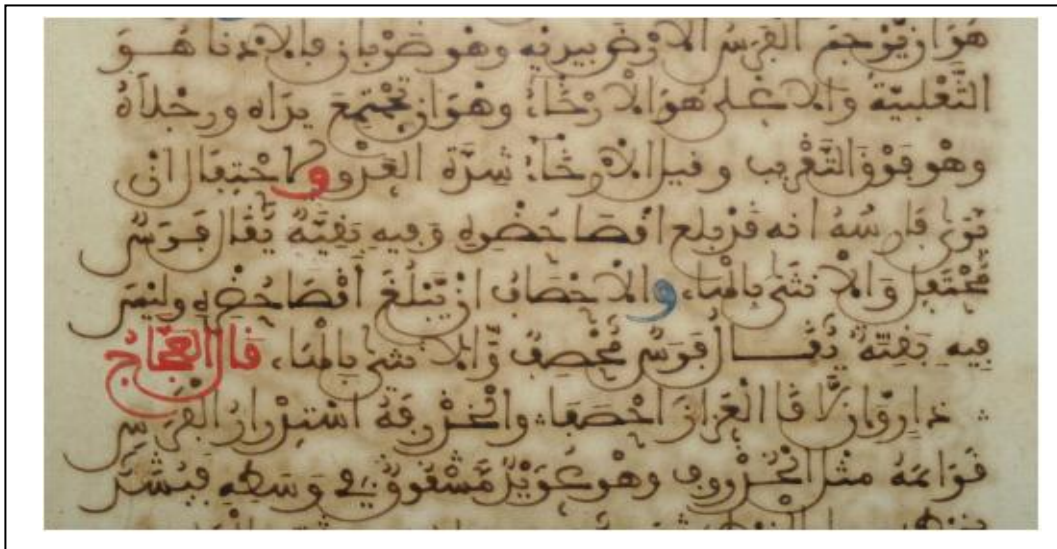 هو ان يرجم الفرس الارض بيديه وهو ضربان فالادنا هو
الثعلبية والاعلى هو الارخاء وهو ان تجتمع يداه ورجلاه
وهو فوق التقريب وقيل الارخاء شدة العدو والاحتفال ان
يرى فارسه انه قد بلغ اقصا حضره وفيه بقية يقال فرس
محتفل والانثى بالهاء، والاخصاف ان يبلغ اقصا حضره وليس
فيه بقية يقال فرس مخصف والانثى بالهاء، قال العجاج
ذار وان لاقا العزاز احصفا والخذرفة استدرار الفرس
قوائمه مثل الخذروف وهو عويد مشقوق في وسطه فيشد